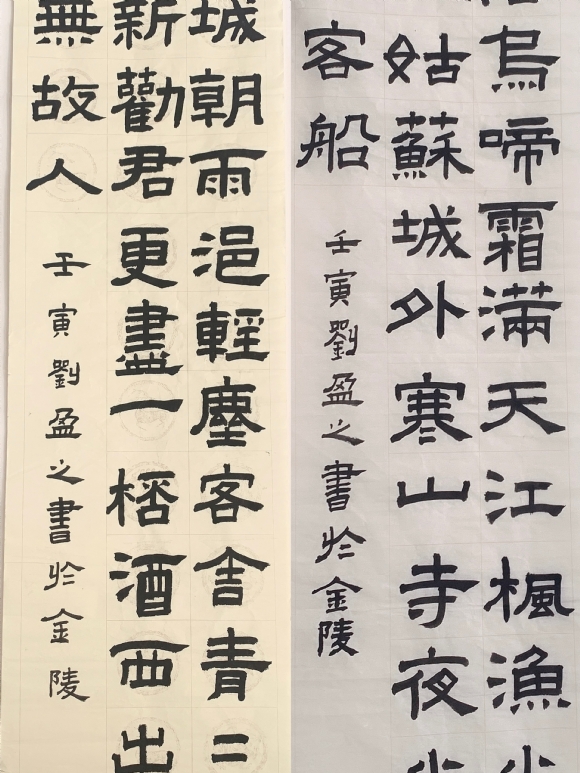 烏啼霜滿天江楓漁
姑蘇城外寒山寺夜
客船
壬寅劉盈之書於金陵
城朝雨浥輕塵客舍青二
新勸君更盡一桮酒西出
無故人
壬寅劉盈之書於金陵